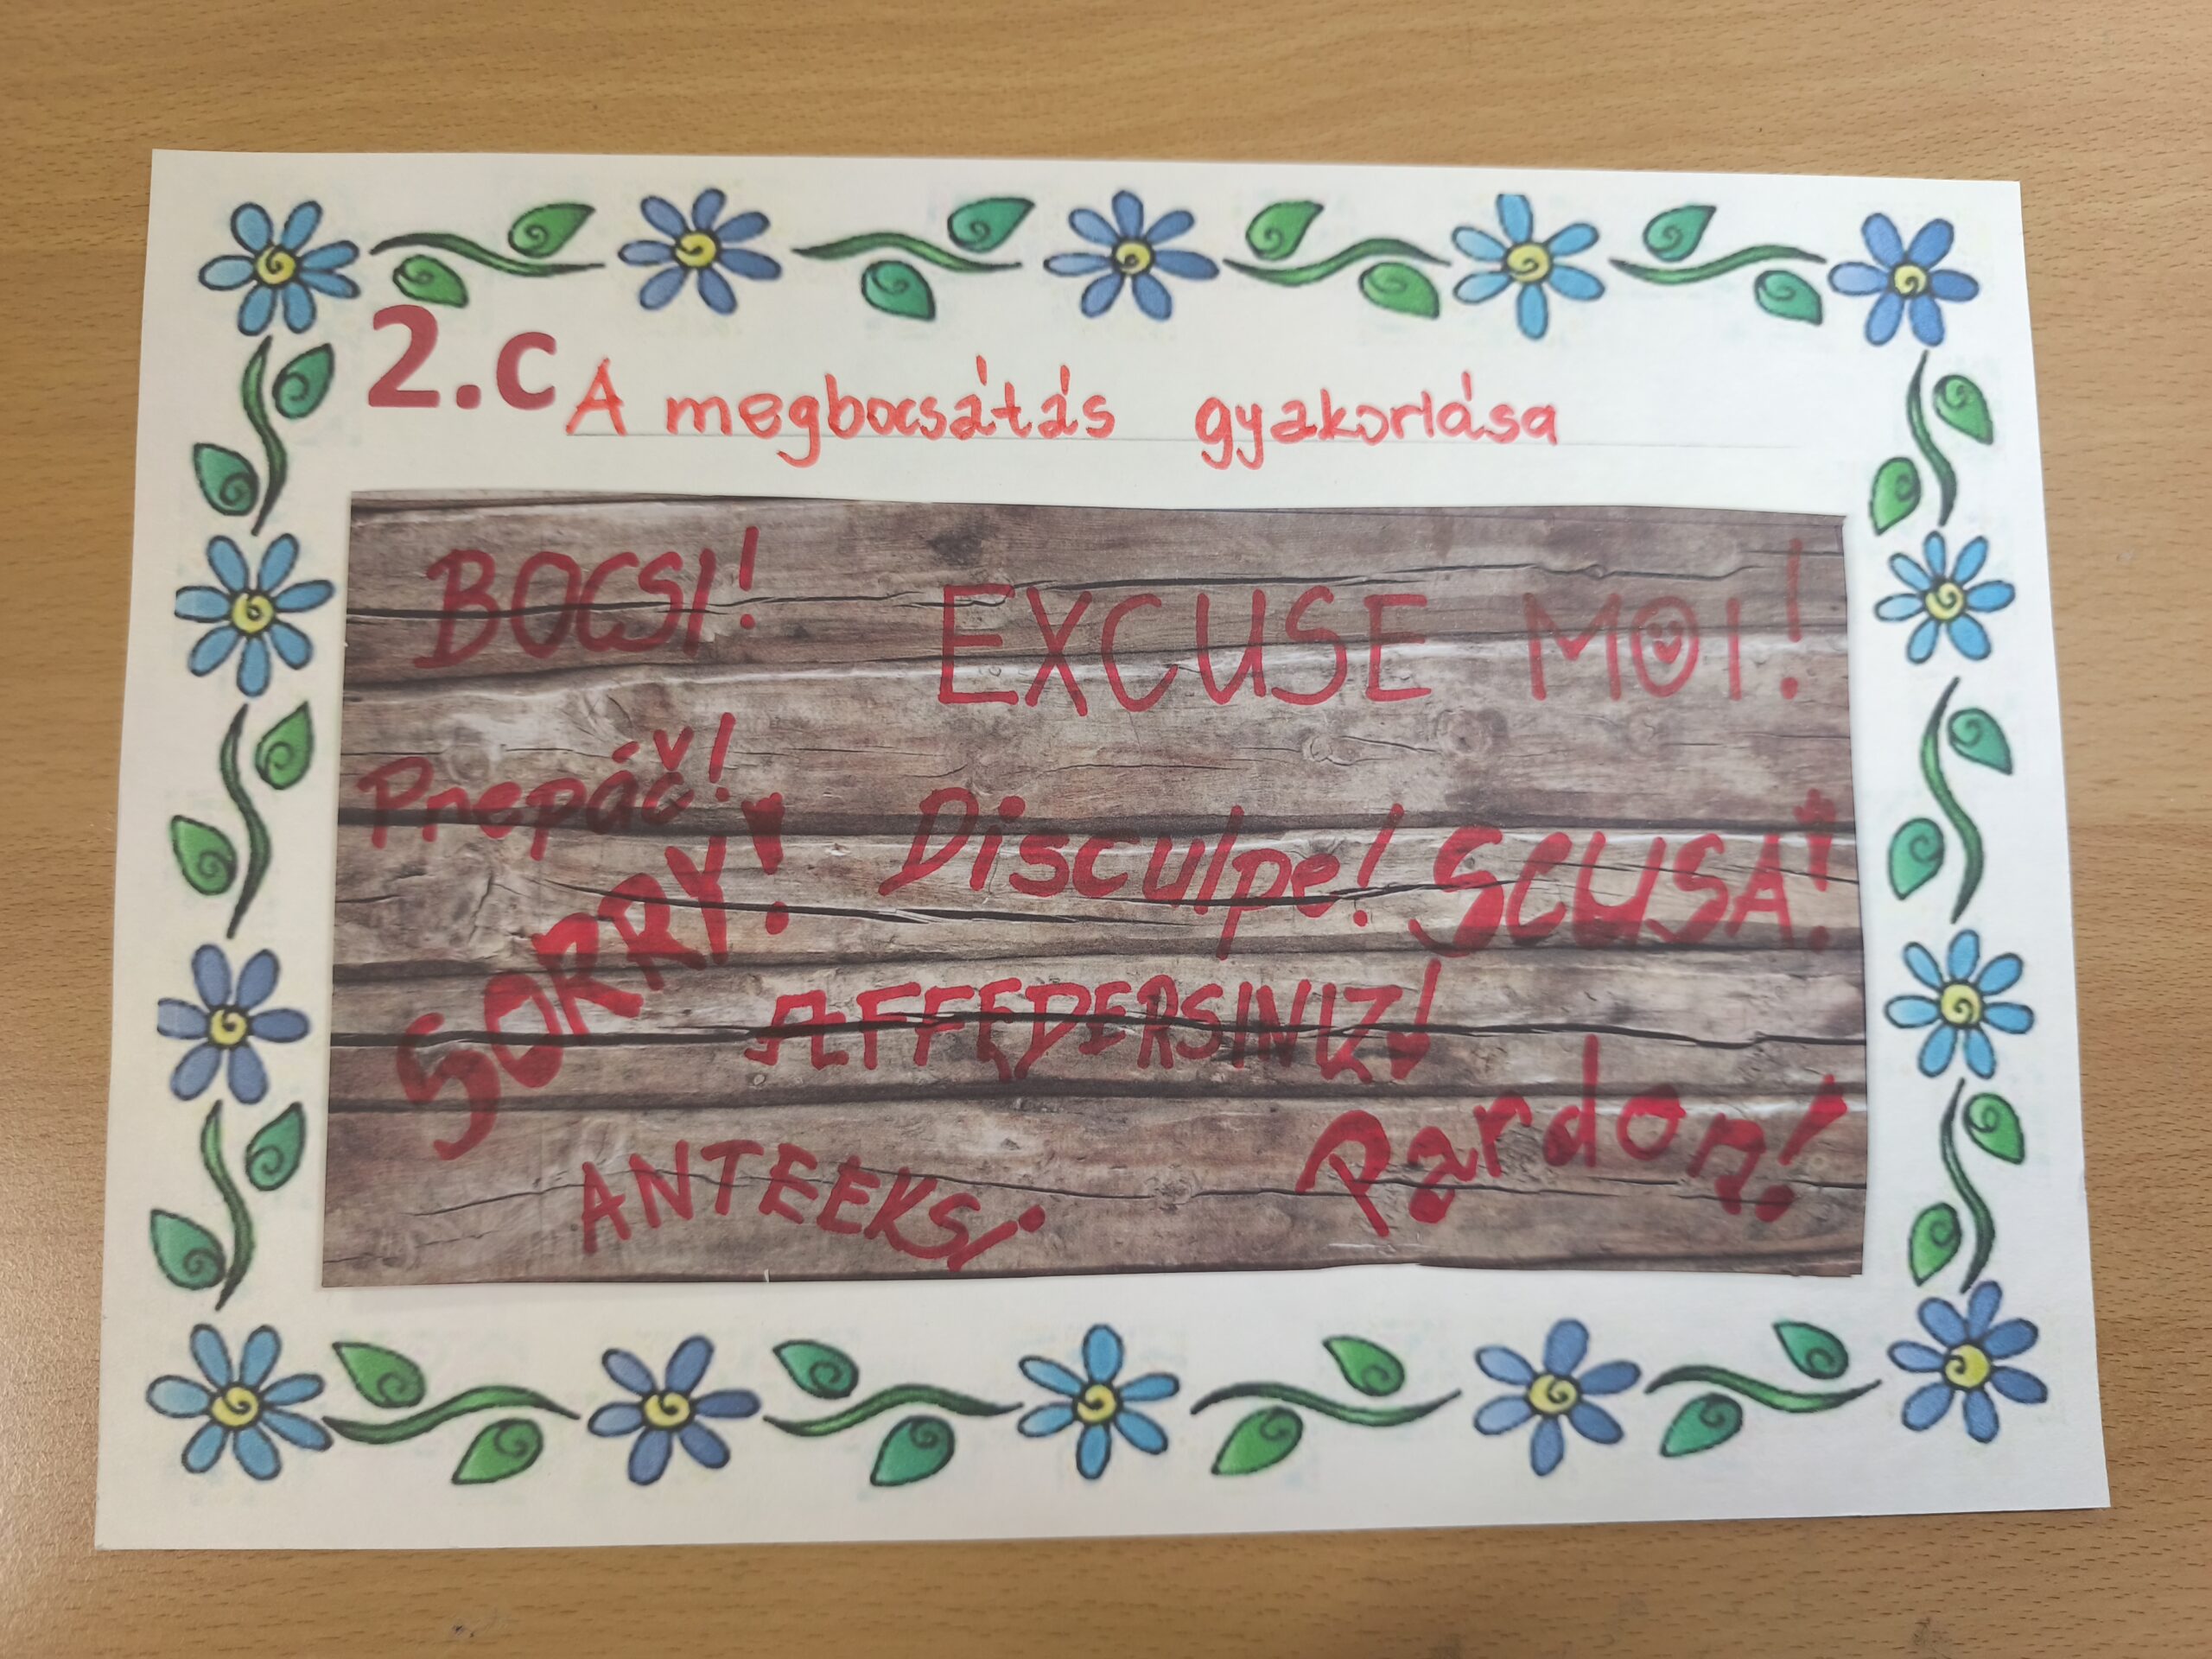 2.c A megbocsátás gyakorlása
BOCSI!
EXCUSE MOI!
Prepáč!
Disculpe!
SCUSA!
SORRY!
AFFEDERSINIZ!
Pardon!
ANTEEKSI